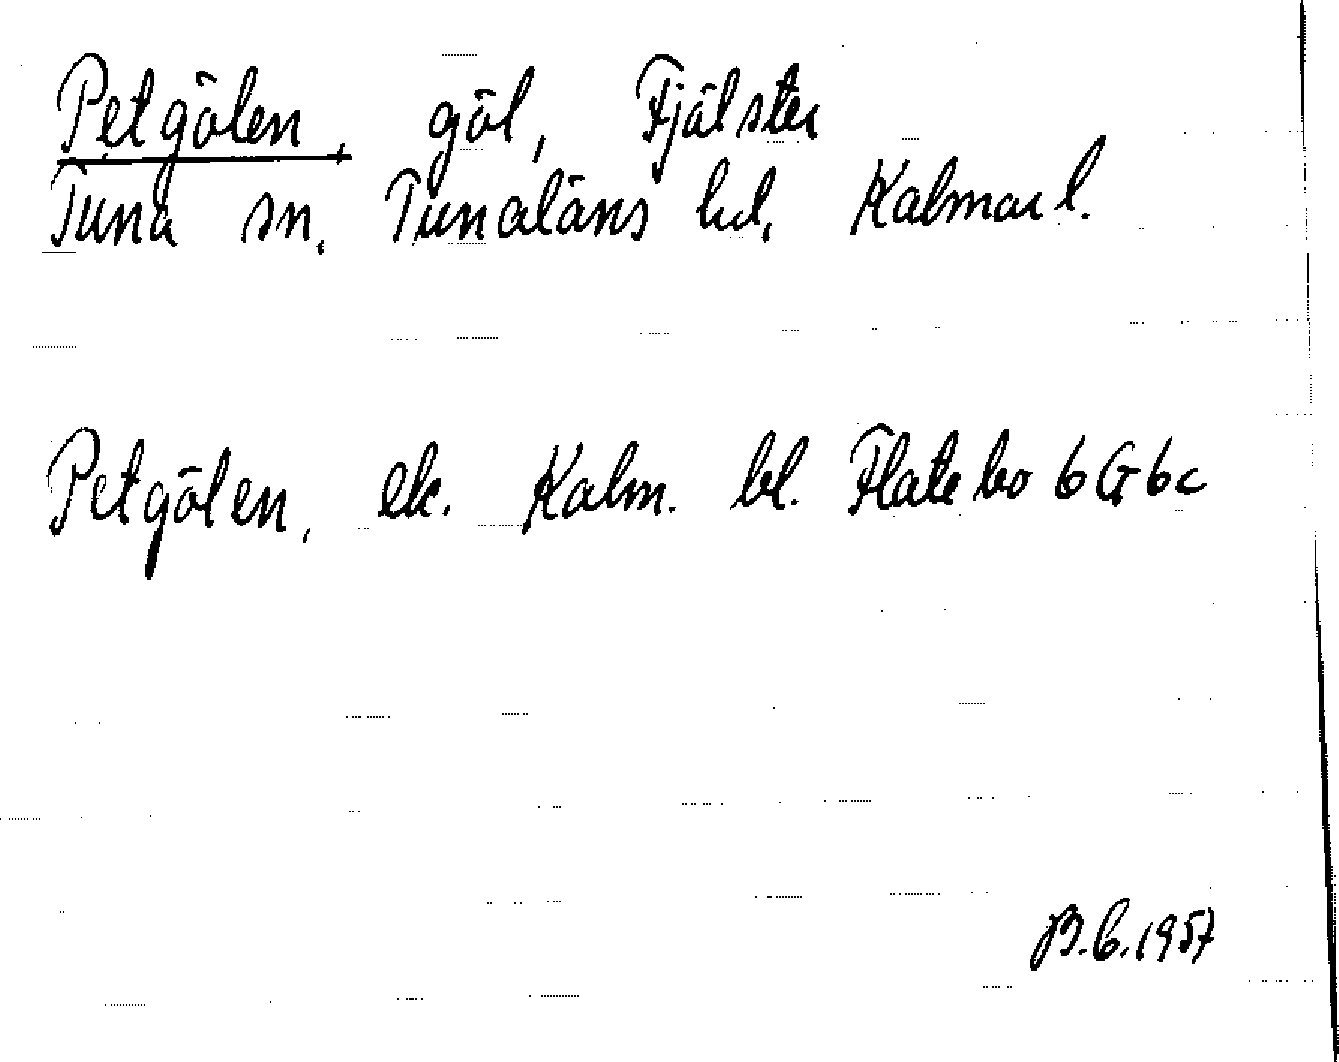 Petgölen, göl, Fjälster
Tuna sn. Tunaläns hd. Kalmar l.
Petgölen, ek. Kalm. bl. Flatebo 6G6c
B.C.1957